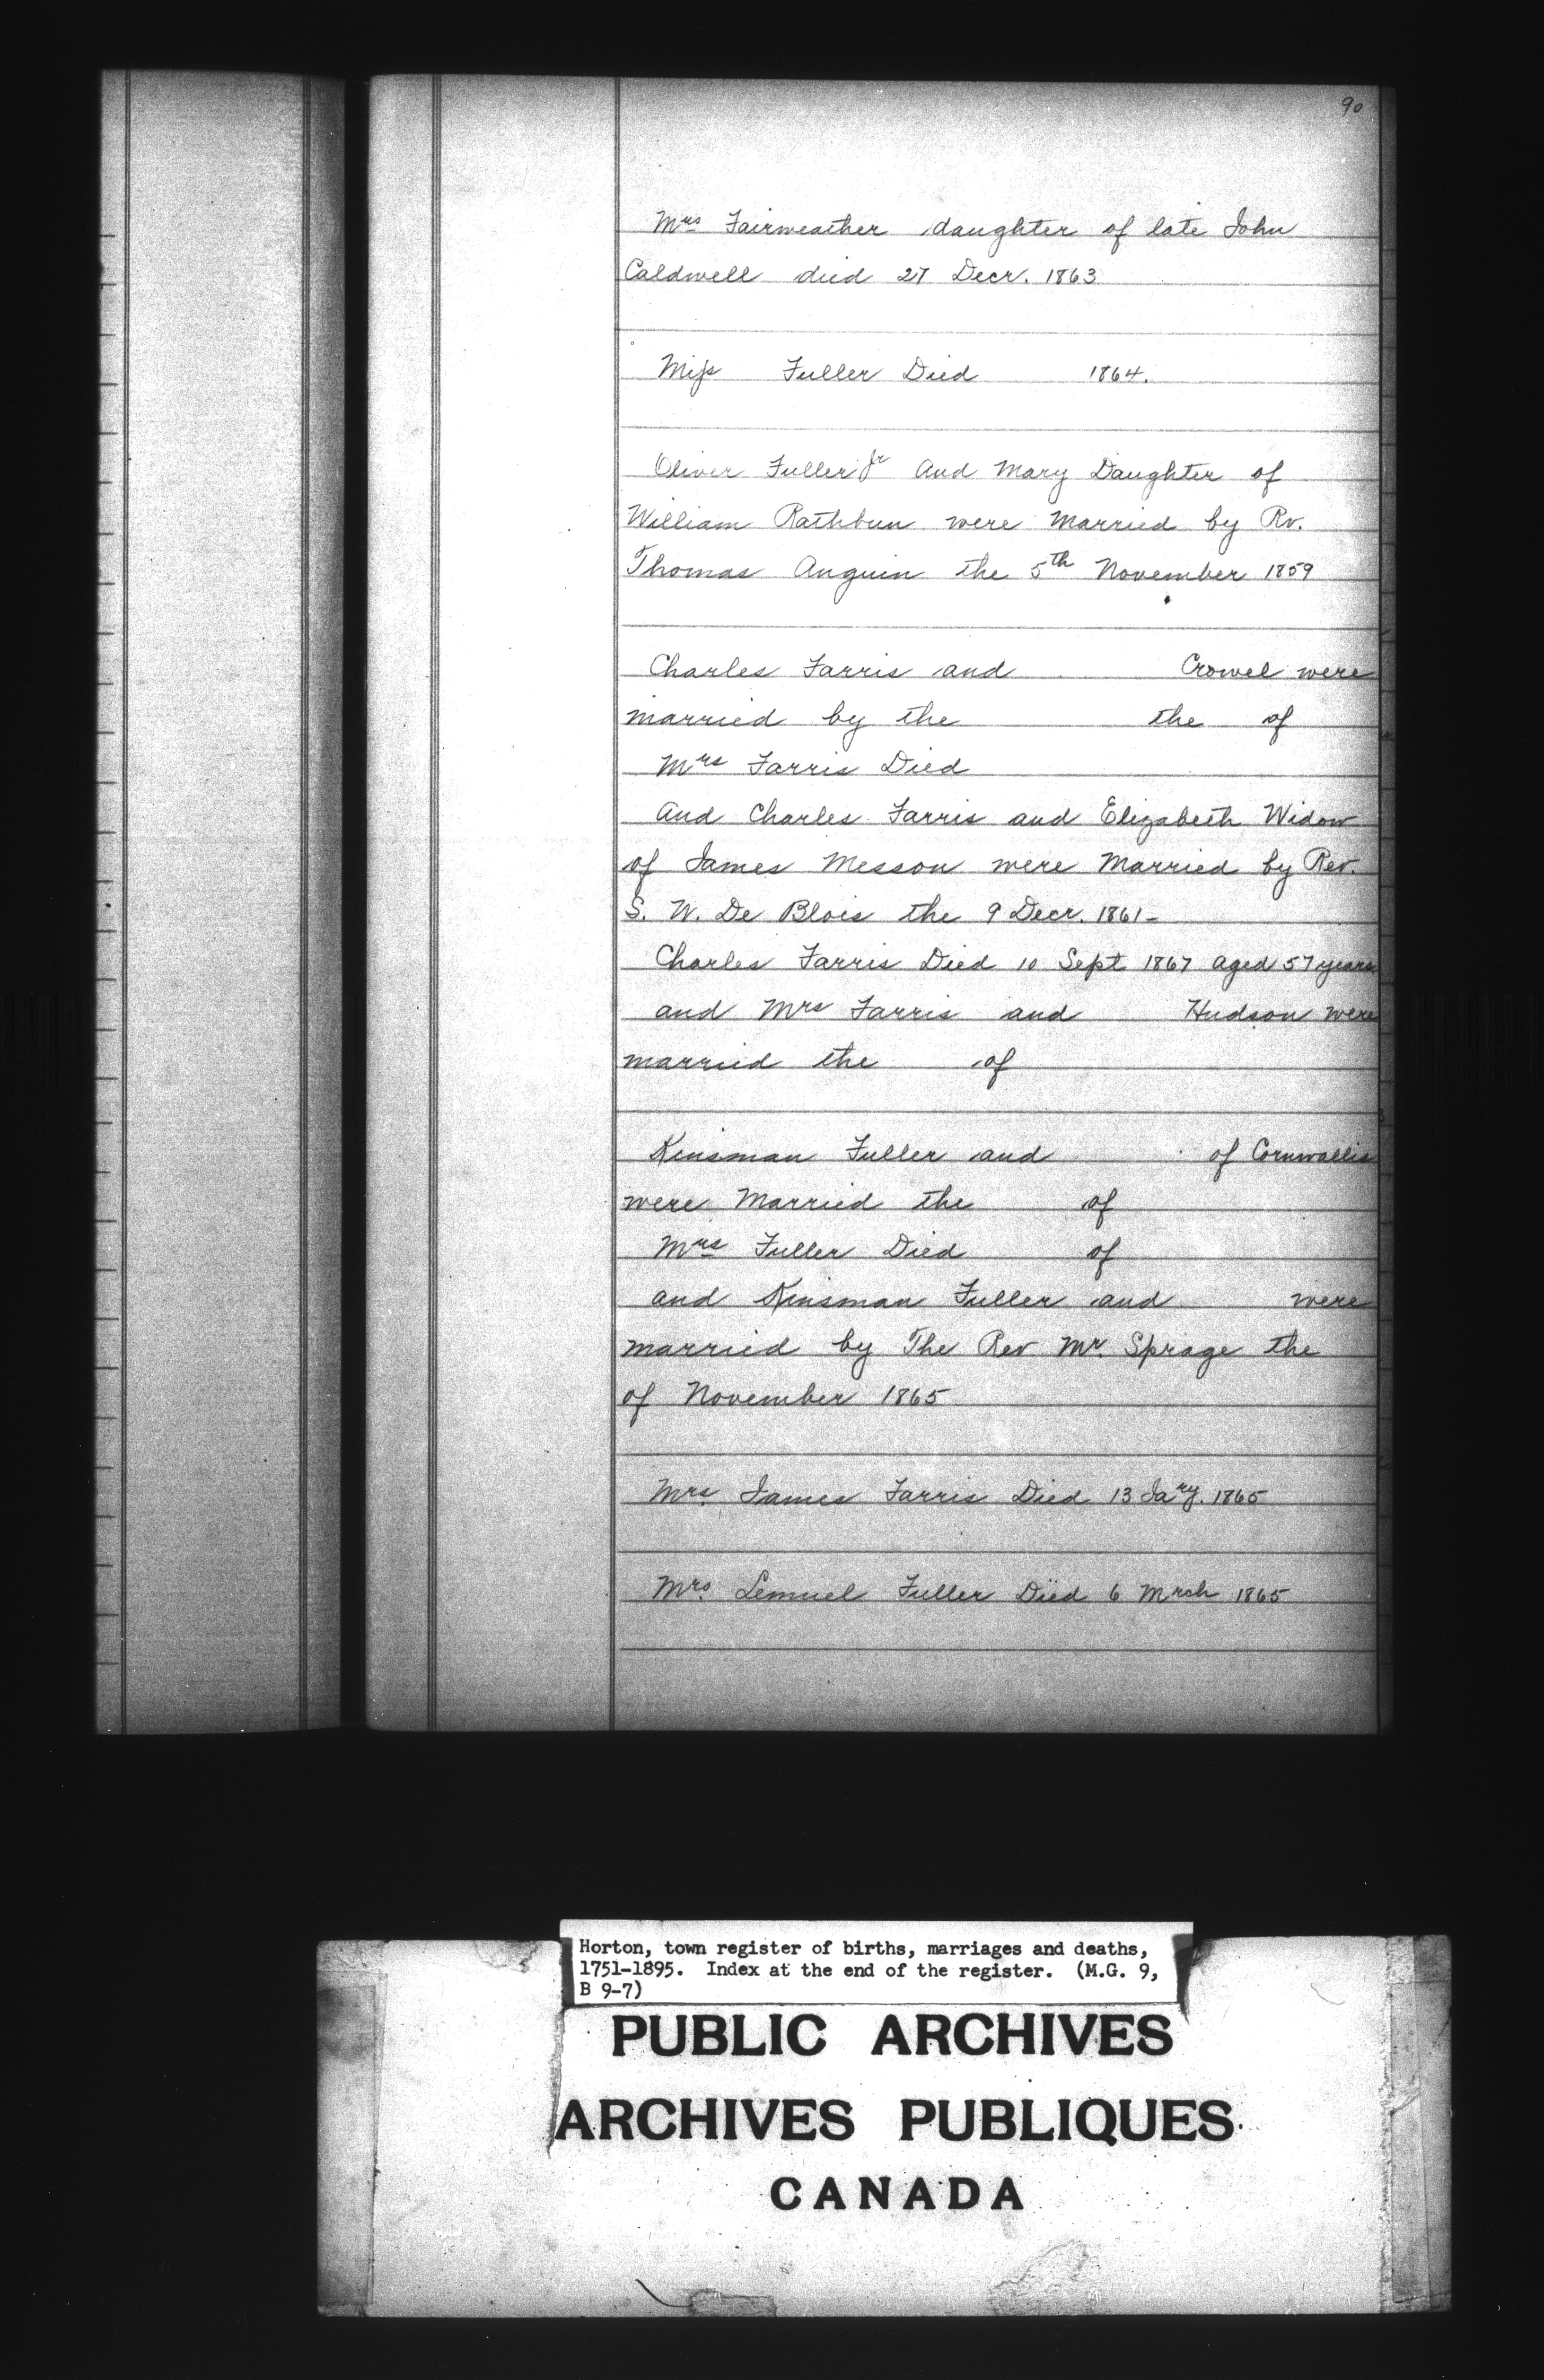 90
Mrs Fairweather daughter of late John
Caldwell died 27 Decr. 1863
Miss Fuller Died 1864.
Oliver Fuller Jr And Mary Daughter of
William Rathbun were Married by Rv.
Thomas Anguin the 5th November 1859
Charles Farris and Crowel were
married by the the of
Mrs Farris Died
And Charles Farris and Elizabeth Widow
of James Messon were Married by Rev.
S. W. De Blois the 9 Decr. 1861-
Charles Farris Died 10 Sept 1867 aged 57 years
and Mrs Farris and Hudson were
married the of
Kinsman Fuller and of Cornwallis
were Married the of
Mrs Fuller Died of
and Kinsman Fuller and were
married by The Rev Mr. Sprage the
of November 1865
Mrs. James Farris Died 13 Jary. 1865
Mrs. Lemuel Fuller Died 6 Mrch 1865
Horton, town register of births, marriages and deaths,
1751-1895. Index at the end of the register. (M.G. 9,
B 9-7)
PUBLIC ARCHIVES
ARCHIVES PUBLIQUES
CANADA